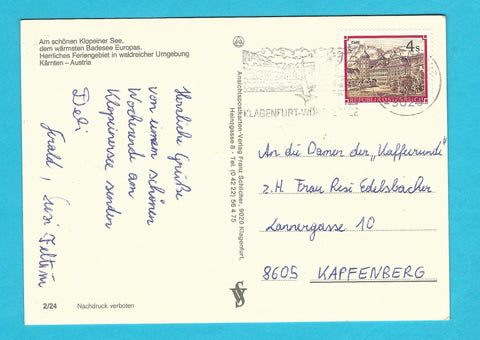 Am schönen Klopeiner See,
dem wärmsten Badesee Europas.
Herrliches Feriengebiet in waldreicher Umgebung
Kärnten – Austria
Herzliche Grüße
von einem schönen
Wochenende am
Klopeinersee senden
Gerald, Susi
2/24 Nachdruck verboten
Ansichtspostkarten-Verlag Franz Schilcher, 9020 Klagenfurt,
Heinzgasse 8 - Tel. (0 42 22) 56 4 75
KLAGENFURT-WÖRTHERSEE
4 S
REPUBLIK ÖSTERREICH
An die Damen der „Kaffeerunde"
z.H. Frau Resi Edelsbacher
Lannergasse 10
8605 KAPFENBERG